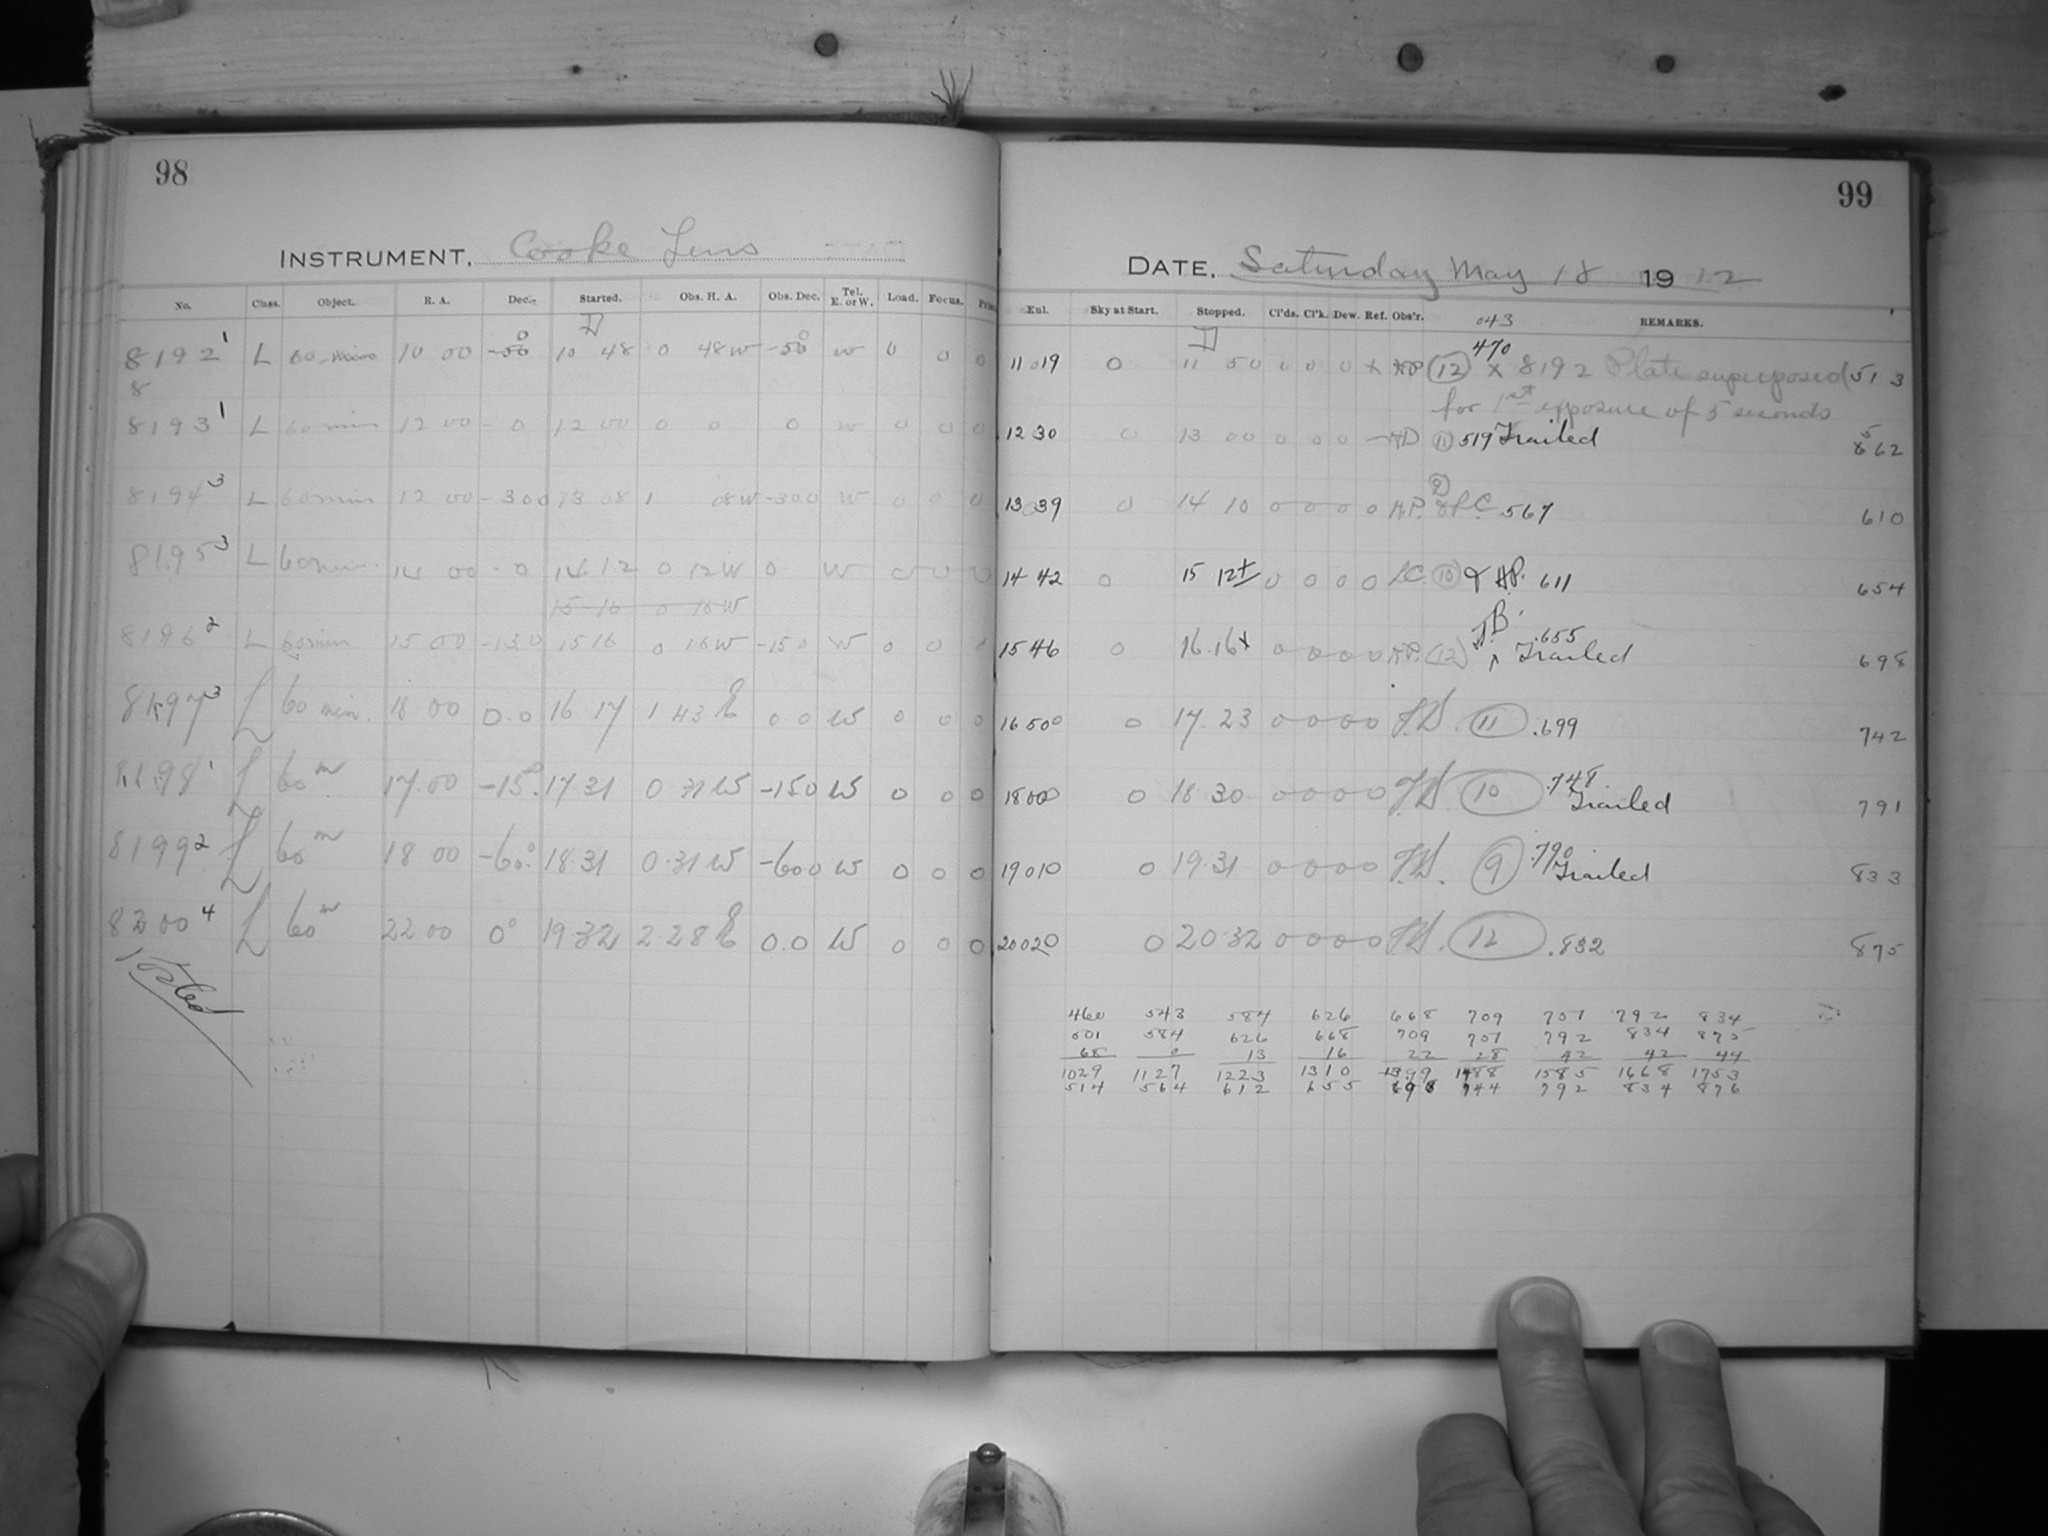 98
INSTRUMENT, Cooke Lens
No. Class. Object. R. A. Dec. Started. Obs. H. A. Obs. Dec. Tel. E. or W. Load. Focus.
8192 1 L 60 mins 10 00 -50 10 48 0 48W -50 W 0 0 0
8
8193 1 L 60 min 12 00 - 0 12 00 0 0 0 W 0 0 0
8194 3 L 60 min 12 00 -300 13 08 1 08W -300 W 0 0 0
8195 3 L 60 min. 14 00 - 0 14 12 0 12W 0 W 0 0 0
15 16 0 16W
8196 2 L 60 min 15 00 -150 15 16 0 16W -150 W 0 0
8197 3 L 60 min. 18 00 0.0 16 17 1 43 E 0.0 W 0 0 0
8198 1 L 60m 17.00 -15° 17.31 0.31W -150 W 0 0 0
8199 2 L 60m 18 00 -60° 18.31 0.31W -600 W 0 0 0
8200 4 L 60m 22 00 0° 19.32 2.28 E 0.0 W 0 0 0
99
DATE, Saturday May 18 1912
Eul. Sky at Start. Stopped. Cl'ds. Cl'k. Dew. Ref. Obs'r. 043 REMARKS.
470
11 019 0 11 50 0 0 0 x HP (12) x 8192 Plate superposed (513
for 1st exposure of 5 seconds
12 30 0 13 00 0 0 0 - HP (11) 519 Trailed 562
13 039 0 14 10 0 0 0 0 H.P. (9) & L.C. 567 610
14 42 0 15 12± 0 0 0 0 LC. (10) & H.P. 611 654
15 46 0 16.16x 0 0 0 0 H.P. (12) J.B. .655 Trailed 698
16 500 0 17.23 0 0 0 0 (11) .699 742
18 000 0 18 30 0 0 0 0 (10) .748 Trailed 791
19 010 0 19.31 0 0 0 0 (9) .790 Trailed 833
20 020 0 20.32 0 0 0 0 (12) .832 875
Posted
460 543 584 626 668 709 751 792 834
501 584 626 668 709 751 792 834 875
68 0 13 16 22 28 42 42 44
1029 1127 1223 1310 1399 1488 1585 1668 1753
514 564 612 655 698 744 792 834 876